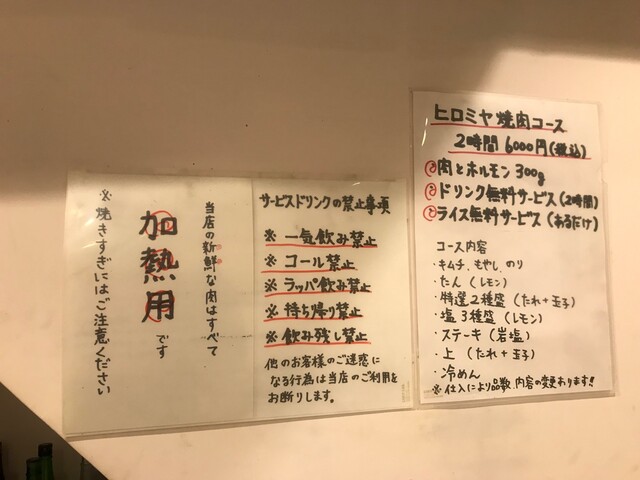 当店の新鮮な肉はすべて
加熱用です
※焼きすぎにはご注意ください
サービスドリンクの禁止事項
※一気飲み禁止
※コール禁止
※ラッパ飲み禁止
※持ち帰り禁止
※飲み残し禁止
他のお客様のご迷惑に
なる行為は当店のご利用を
お断りします。
ヒロミヤ焼肉コース
2時間 6000円(税込)
肉とホルモン 300g
ドリンク無料サービス(2時間)
ライス無料サービス(あるだけ)
コース内容
・キムチ、もやし、のり
・たん(レモン)
・特選2種盛(たれ+玉子)
・塩3種盛(レモン)
・ステーキ(岩塩)
・上(たれ+玉子)
・冷めん
※仕入により品数、内容の変更あります!!